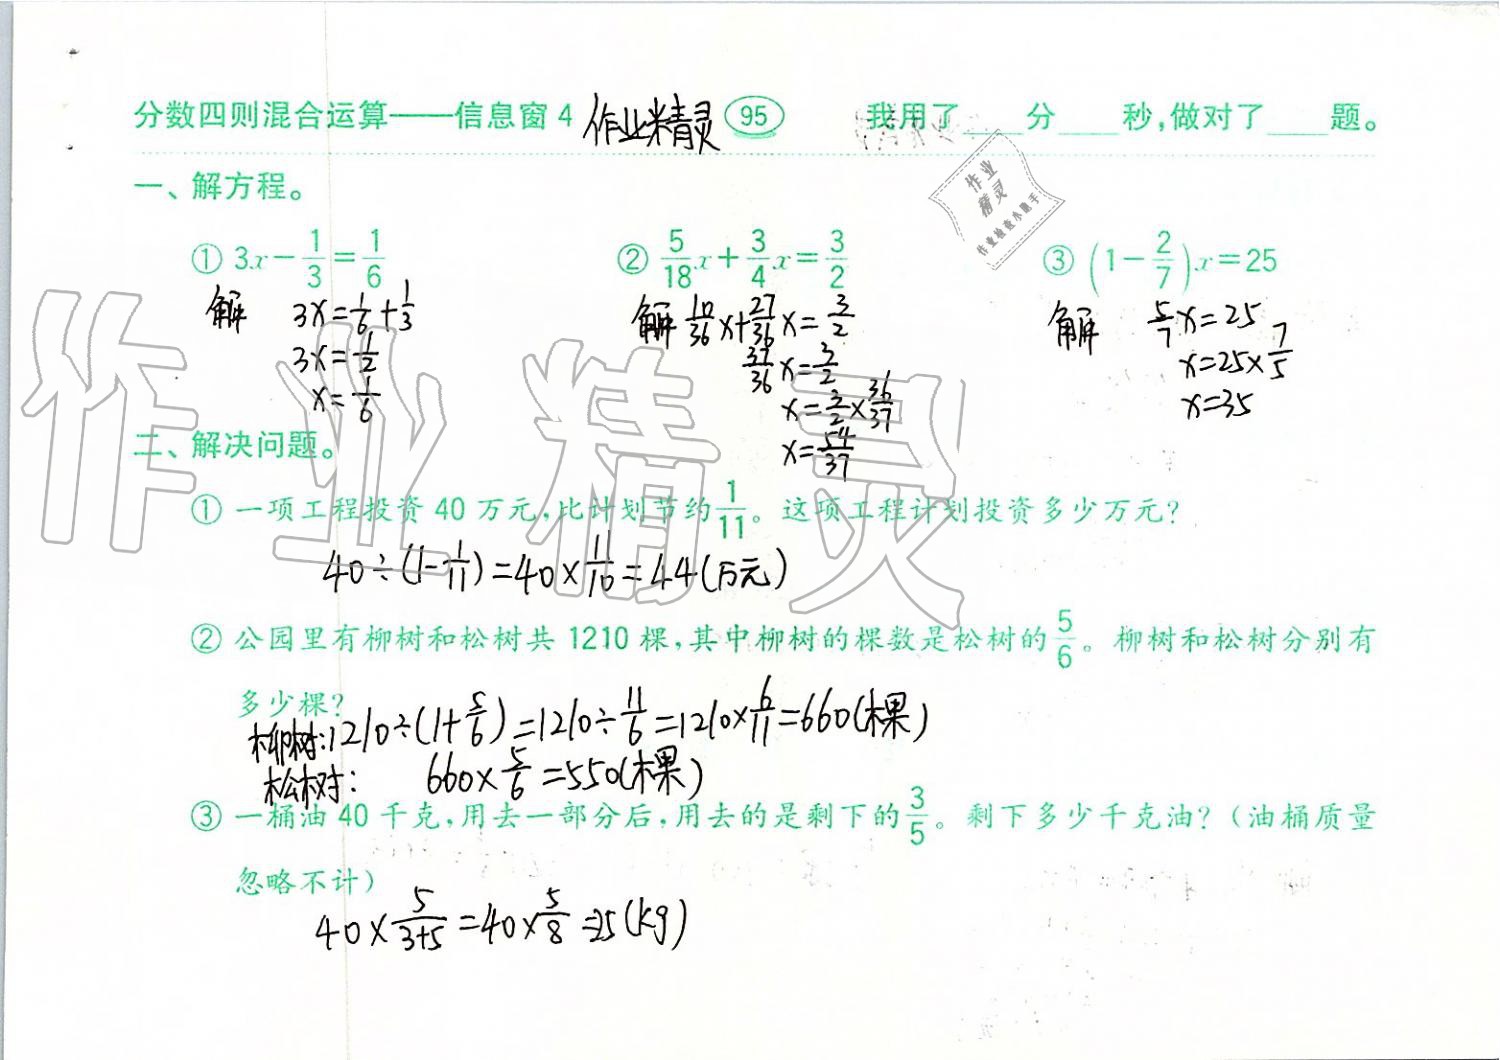 分数四则混合运算——信息窗4 作业精灵 95 我用了____分____秒,做对了____题。
作业精灵 作业检查小能手
一、解方程。
① 3x-1/3=1/6 ② 5/18x+3/4x=3/2 ③ (1-2/7)x=25
解 3x=1/6+1/3 解 10/36x+27/36x=3/2 解 5/7x=25
3x=1/2 37/36x=3/2 x=25×7/5
x=1/6 x=3/2×36/37 x=35
x=54/37
作业精灵
二、解决问题。
① 一项工程投资40万元,比计划节约1/11。这项工程计划投资多少万元?
40÷(1-1/11)=40×11/10=44(万元)
② 公园里有柳树和松树共1210棵,其中柳树的棵数是松树的5/6。柳树和松树分别有
多少棵?
柳树:1210÷(1+5/6)=1210÷11/6=1210×6/11=660(棵)
松树: 660×5/6=550(棵)
③ 一桶油40千克,用去一部分后,用去的是剩下的3/5。剩下多少千克油?(油桶质量
忽略不计)
40×5/3+5=40×5/8=25(kg)